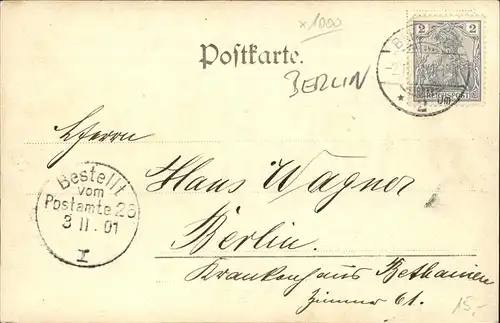 x1000
Postkarte.
BERLIN
2
REICHSPOST
Herrn
Hans Wagner
Berlin.
Krankenhaus Bethanien
Zimmer 61.
Bestellt
vom
Postamte 26
3 II. 01
I
15,-